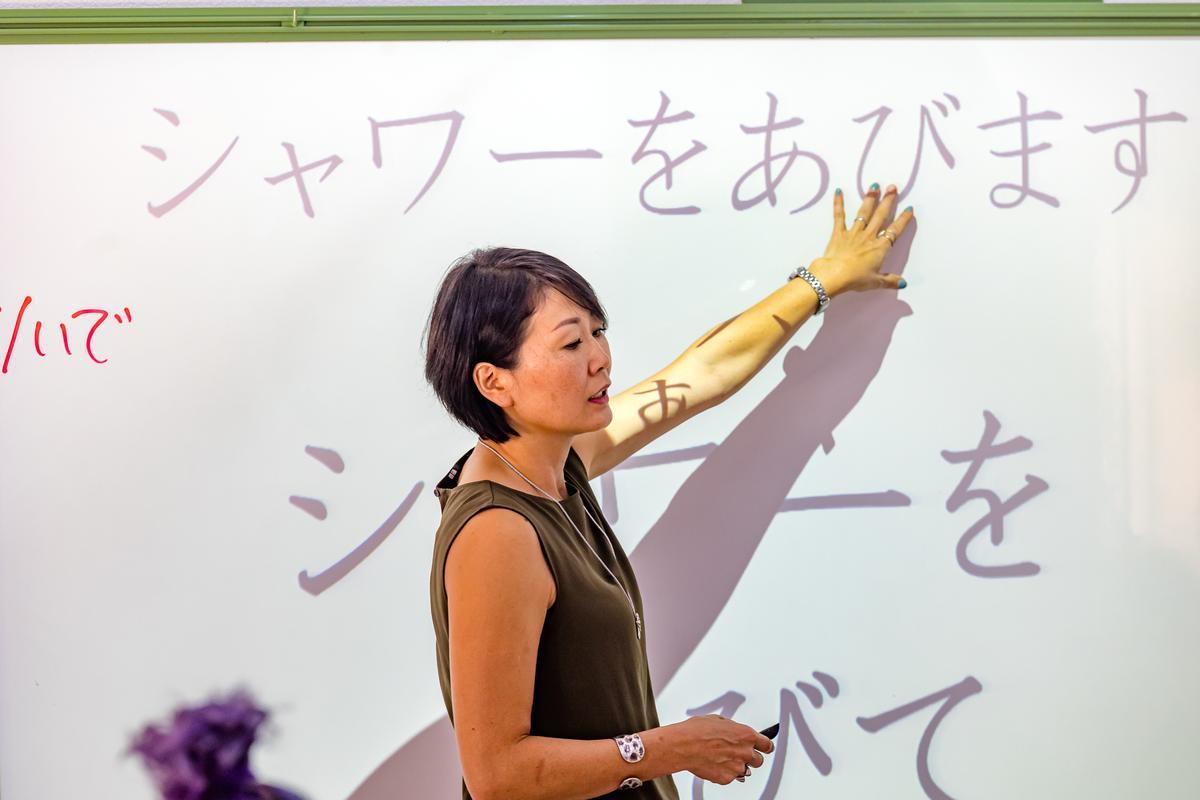 シャワーをあびます
いで
シ ワーを
びて